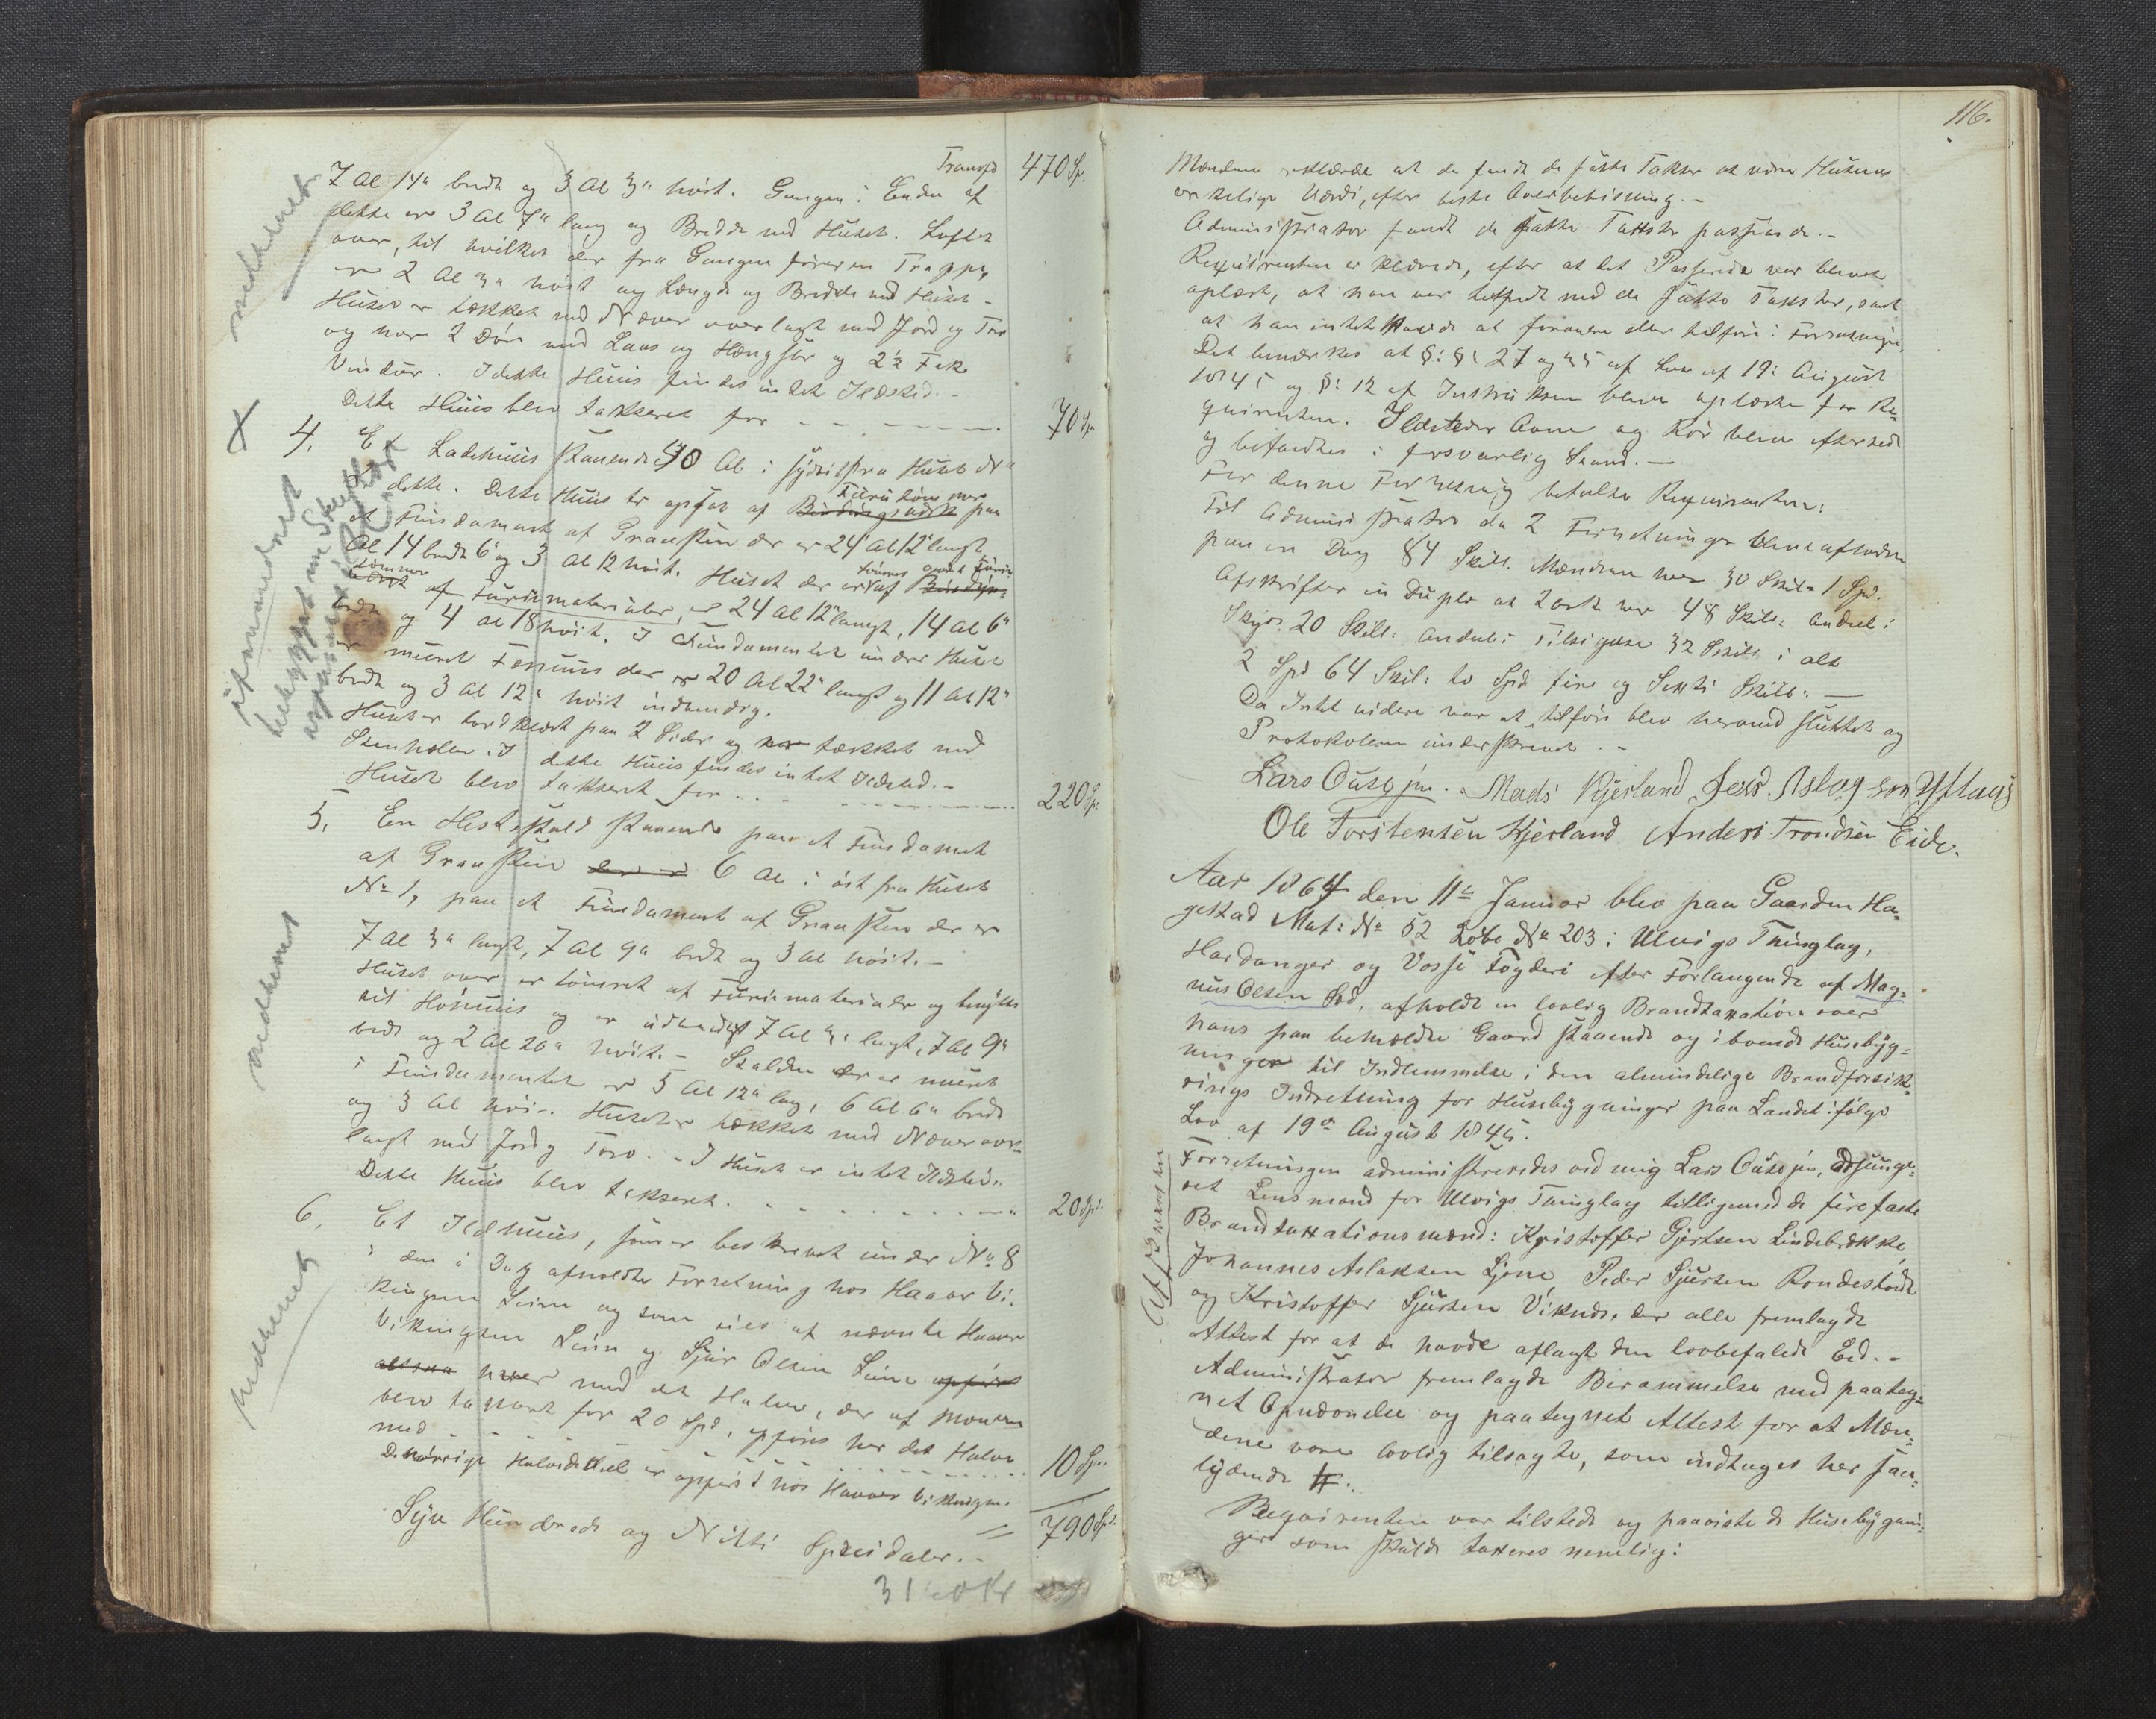 Transpt 470 Sp.
7 Al 14" bredt og 3 Al 3" høit. Gangen i Enden af
dette er 3 Al 7" lang og Bredde med Huset. Loftet
over, til hvilket der fra Gangen fører en Trappe,
er 2 Al 3" høit og Længde og Bredde med Huset -
Huset er tækket med Næver overlagt med Jord og Torv
og har 2 Døre med Laas og Hængsler og 2½ Fak
Vinduer. I dette Huus findes intet Ildsted. -
Dette Huus blev takseret for - - - - - - 70 Sp.
nedbrent
4. Et Ladehuus staaende 90 Al i syd fra Huset N
dette. Dette Huus er opført af Bindingsværk paa
et Fundament af Graasten der er 24 Al 12" langt
Al 14 bredt 6" og 3 Al 12 høit. Huset der er af
af Furumaterialer, er 24 Al 12" langt, 14 Al 6"
bredt og 4 Al 18 høit. I Fundamentet under Huset
er muret Fæhuus der er 20 Al 22" langt og 11 Al 12"
bredt og 3 Al 12" høit indvendig.
Huset er bordklædt paa 2 Sider og tækket med
Steenheller. I dette Huus findes intet Ildsted. -
Huset blev takseret for - - - - 220 Sp.
5. En Hestestald staaende paa et Fundament
af Graasten der er 6 Al i øst fra Huset
No 1, paa et Fundament af Graasten der er
7 Al 3" langt, 7 Al 9" bredt og 3 Al høit. -
Huset over er tømret af Furumaterialer og benyttes
til Høhuus og er udvendigt 7 Al 3" langt, 7 Al 9"
bredt og 2 Al 20" høit. - Stalden der er muret
i Fundamentet er 5 Al 12" lang, 6 Al 6" bredt
og 3 Al høi -. Huset er tækket med Næver over=
lagt med Jord og Torv. - I Huset er intet Ildsted.
Dette Huus blev takseret - - - - - 20 Spd.
nedbrent
6. Et Ildhuus, som er beskrevet under No 8
i den i Dag afholdte Forretning hos Haaver Vi=
kingsen Leine og som eies af nævnte Haaver
Vikingsen Lein og Sjur Olsen Leine
altsaa hver med det Halve, der af Mændene
blev taxeret for 20 Spd, opføres her det Halve
med - - - - - - 10 Spd.
Den øvrige Halvedeel er opført hos Haaver Vikingsen.
790 Spd.
Syv Hundrede og Nitti Speciedaler. -
3160 Kr
nedbrent
116.
Mændene erklærede at de fandt de satte Takster at være Husenes
virkelige Værdi, efter beste Overbevisning. -
Administrator fandt de satte Takster passende. -
Requirenten erklærede, efter at det Passerede var blevet
oplæst, at han var tilfreds med de satte Taxster, samt
at han intet havde at forandre eller tilføie i Forretningen.
Det bemærkes at §: §: 27 og 35 af Lov af 19: August
1845 og §: 12 af Instruksen bleve oplæste for Re=
quirenten. Ildsteder Ovne og Rør bleve efterseet
og befandtes i forsvarlig Stand. -
For denne Forretning betalte Requirenten:
Til Administrator da 2 Forretninger bleve afholdte
paa en Dag 84 Skill. Mændene hver 30 Skil= 1 Spd.
Afskrifter in Duplo at 2 ark hver 48 Skill: Andeel i
Skyds. 20 Skill: Andeel i Tilsigelse 32 Skill: i alt
2 Spd 64 Skil: to Spd fire og Sexti Skill: -
Da Intet videre var at tilføie blev hermed sluttet og
Protokollen underskrevet. -
Lars Ouse jnr. Mads Kjerland Jens Aslagson Ystaas
Ole Torstensen Kjerland Anders Trondsen Eide.
Aar 1864 den 11te Januar blev paa Gaarden Ha=
gestad Mat: No 52 Løbe No 203 i Ulvigs Thinglag,
Hardanger og Vosse Fogderi efter Forlangende af Mag=
nus Olsen Sød, afholdt en lovlig Brandtaxation over
hans paa bemældte Gaard staaende og iboende Husebyg=
ninger til Indlemmelse i den almindelige Brandforsik=
rings Indretning for Husebygninger paa Landet ifølge
Lov af 19de August 1845.
Forretningen administreredes ved mig Lars Ouse jnr, adjunge=
ret Lensmand for Ulvigs Thinglag tilligemed de fire faste
Brandtaxationsmænd: Kristoffer Gjertsen Lindebrække,
Johannes Aslaksen Ljone, Peder Sjursen Rondestvedt
og Kristoffer Sjursen Viknes, der alle fremlagde
Attest for at de havde aflagt den lovbefalede Eed. -
Administrator fremlagde Berammelse med paateg=
net Opnævnelse og paategnet Attest for at Mæn=
dene vare lovlig tilsagte, som indtages her saa=
lydende #.
Requirenten var tilstede og paaviste de Husebygnin=
ger som skulde taxeres nemlig: